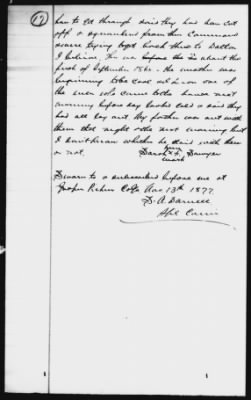 (17)
how to get through said they had been cut
off & separated from their Command
were trying to get back there to Dalton
I believe. This was before the in about the
first of September 1864. The weather was
beginning to be cool as in one of
the men who came to the house next
morning before day looked cold & said they
had all lay out. My brother was out with
them that night & the next morning but
I dont know whether he staid with them
or not.
Sarah her F. Sawyer
mark
Sworn to & subscribed before me at
Jasper Pickens Co Ga Nov 13th 1877
S. A. Darnell
Spl Comr